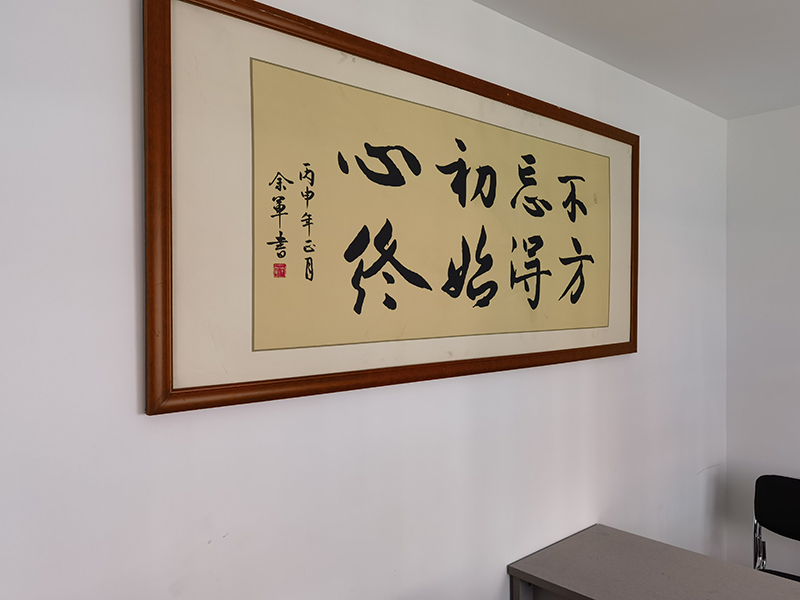 不忘初心
方得始终
丙申年正月
余軍書